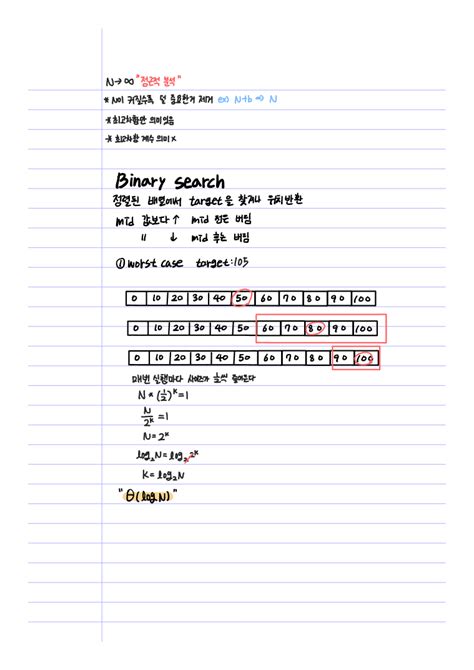 N→∞ "점근적 분석"
* N이 커질수록 덜 중요한거 제거 ex) N+b ⇒ N
* 최고차항만 의미있음
* 최고차항 계수 의미 x
Binary search
정렬된 배열에서 target을 찾거나 위치반환
mid 값보다 ↑ mid 전은 버림
〃 ↓ mid 후는 버림
① worst case target:105
0 10 20 30 40 50 60 70 80 90 100
0 10 20 30 40 50 60 70 80 90 100
0 10 20 30 40 50 60 70 80 90 100
매번 실행마다 사이즈가 ½씩 줄어든다
N * (½)^k = 1
N/2^k = 1
N = 2^k
log₂N = log₂2^k
K = log₂N
"θ(logN)"